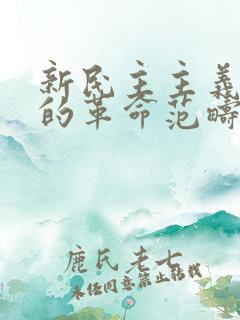 新民主主義
的革命范疇
鹿氏老七
未经同意禁止转载